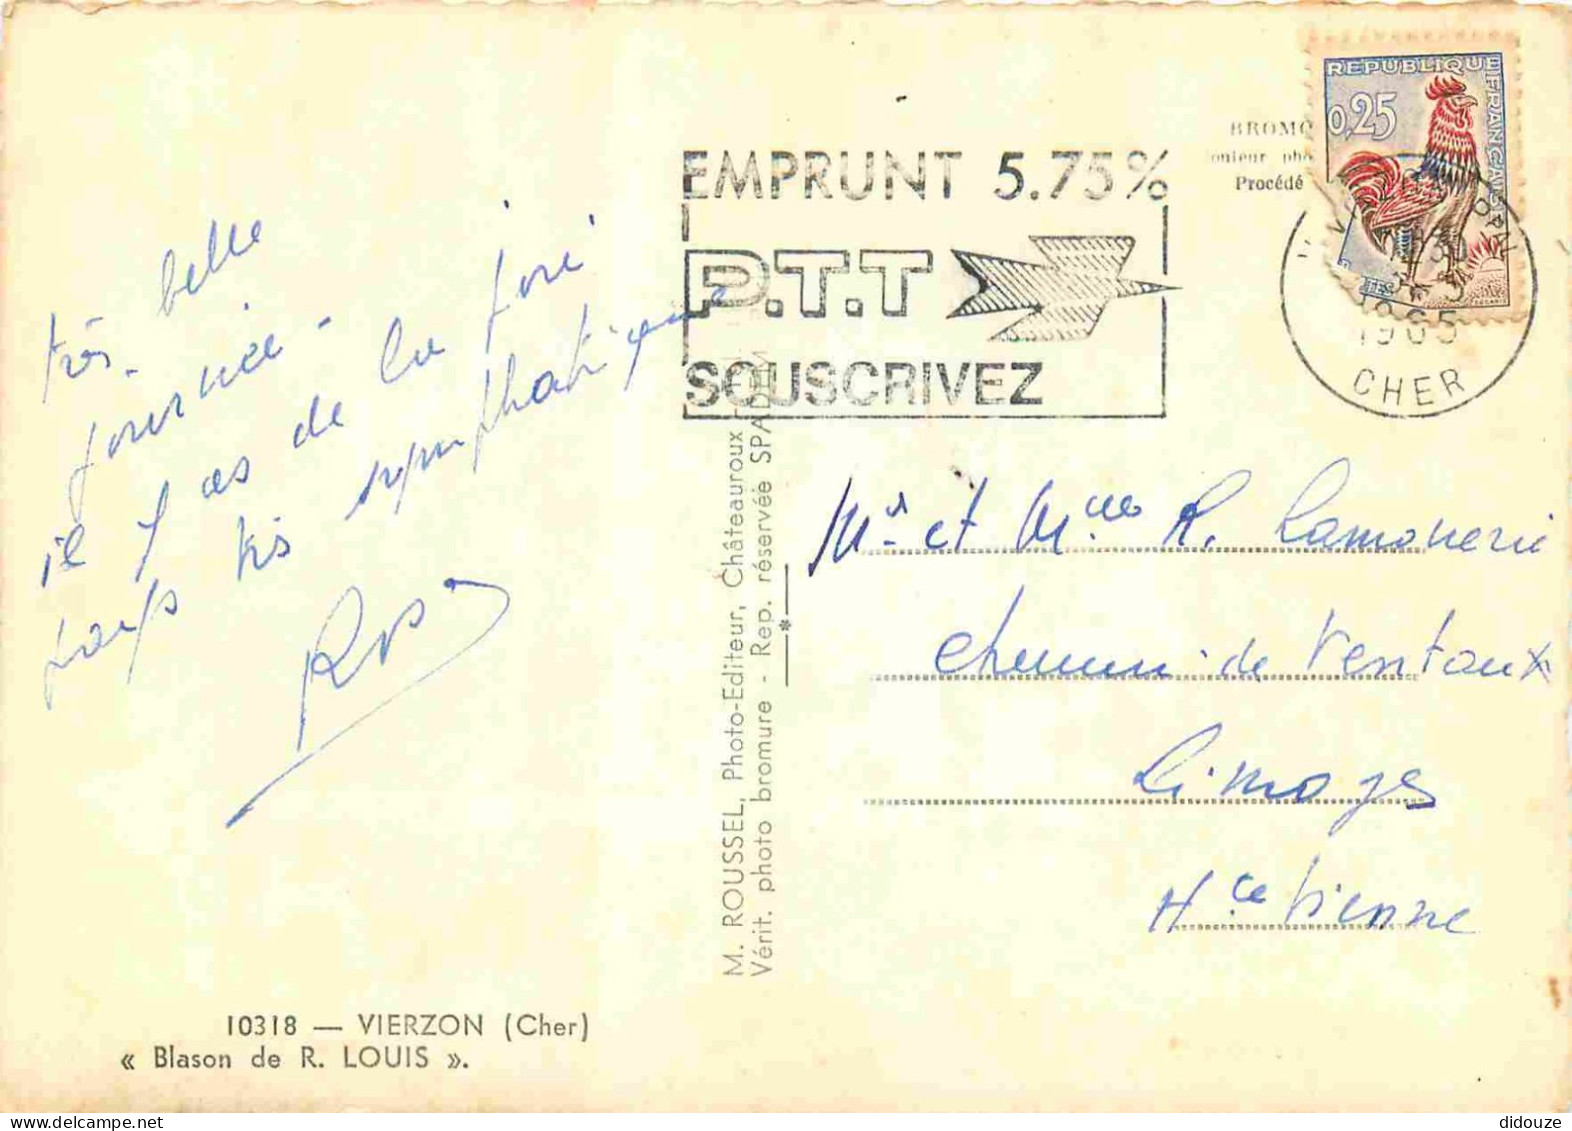 REPUBLIQUE FRANÇAISE
0,25
BROMO
Procédé
EMPRUNT 5.75%
P.T.T
SOUSCRIVEZ
1965
CHER
très belle
journée
il y as de la joie
très sympathique
Mr et Mme R. Lamonerie
chemin de Ventaux
Limoges
Hte Vienne
M. ROUSSEL, Photo-Editeur, Châteauroux
Vérit. photo bromure - Rep. réservée SPADEM
10318 — VIERZON (Cher)
« Blason de R. LOUIS ».
didouze